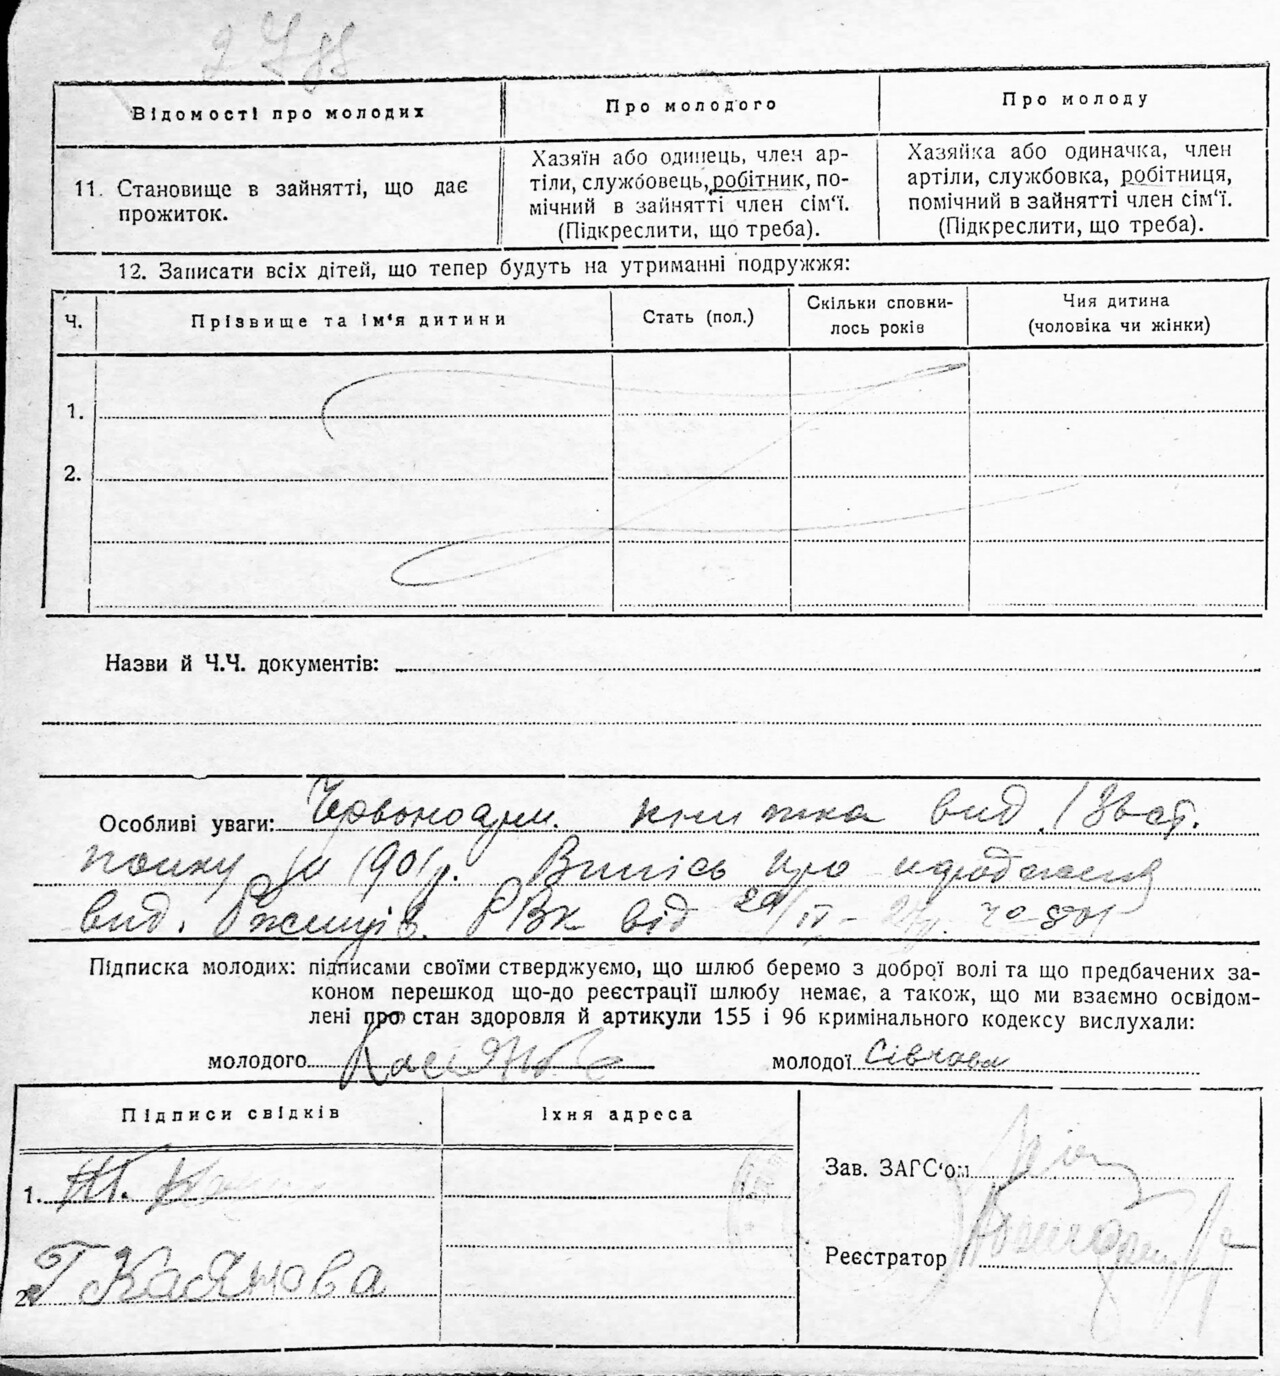 Відомості про молодих
Про молодого
Про молоду
11. Становище в зайнятті, що дає
прожиток.
Хазяїн або одинець, член ар-
тіли, службовець, робітник, по-
мічний в зайнятті член сім‘ї.
(Підкреслити, що треба).
Хазяйка або одиначка, член
артіли, службовка, робітниця,
помічний в зайнятті член сім‘ї.
(Підкреслити, що треба).
12. Записати всіх дітей, що тепер будуть на утриманні подружжя:
Ч.
Прізвище та ім‘я дитини
Стать (пол.)
Скільки сповни-
лось років
Чия дитина
(чоловіка чи жінки)
1.
2.
Назви й Ч.Ч. документів:
Особливі уваги: Червоноарм. книжка вид.
полку 1901 р. Випісь про народження
вид. Ржищів. РВК від
Підписка молодих: підписами своїми стверджуємо, що шлюб беремо з доброї волі та що предбачених за-
коном перешкод що-до реєстрації шлюбу немає, а також, що ми взаємно освідом-
лені про стан здоровля й артикули 155 і 96 кримінального кодексу вислухали:
молодого
молодої
Підписи свідків
Їхня адреса
1.
2. Г Касянова
Зав. ЗАГС‘ом
Реєстратор